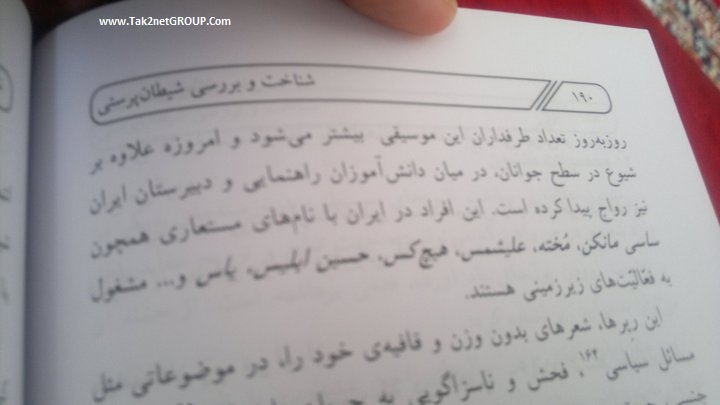 www.Tak2netGROUP.Com
۱۹۰ شناخت و بررسی شیطان‌پرستی
روزبه‌روز تعداد طرفداران این موسیقی بیشتر می‌شود و امروزه علاوه بر
شیوع در سطح جوانان، در میان دانش‌آموزان راهنمایی و دبیرستان ایران
نیز رواج پیدا کرده است. این افراد در ایران با نام‌های مستعاری همچون
ساسی مانکن، مُخته، علیشمس، هیچ‌کس، حسین ابلیس، یاس و... مشغول
به فعّالیّت‌های زیرزمینی هستند.
این رپرها، شعرهای بدون وزن و قافیه‌ی خود را، در موضوعاتی مثل
مسائل سیاسی۱۶۴، فحش و ناسزاگویی به